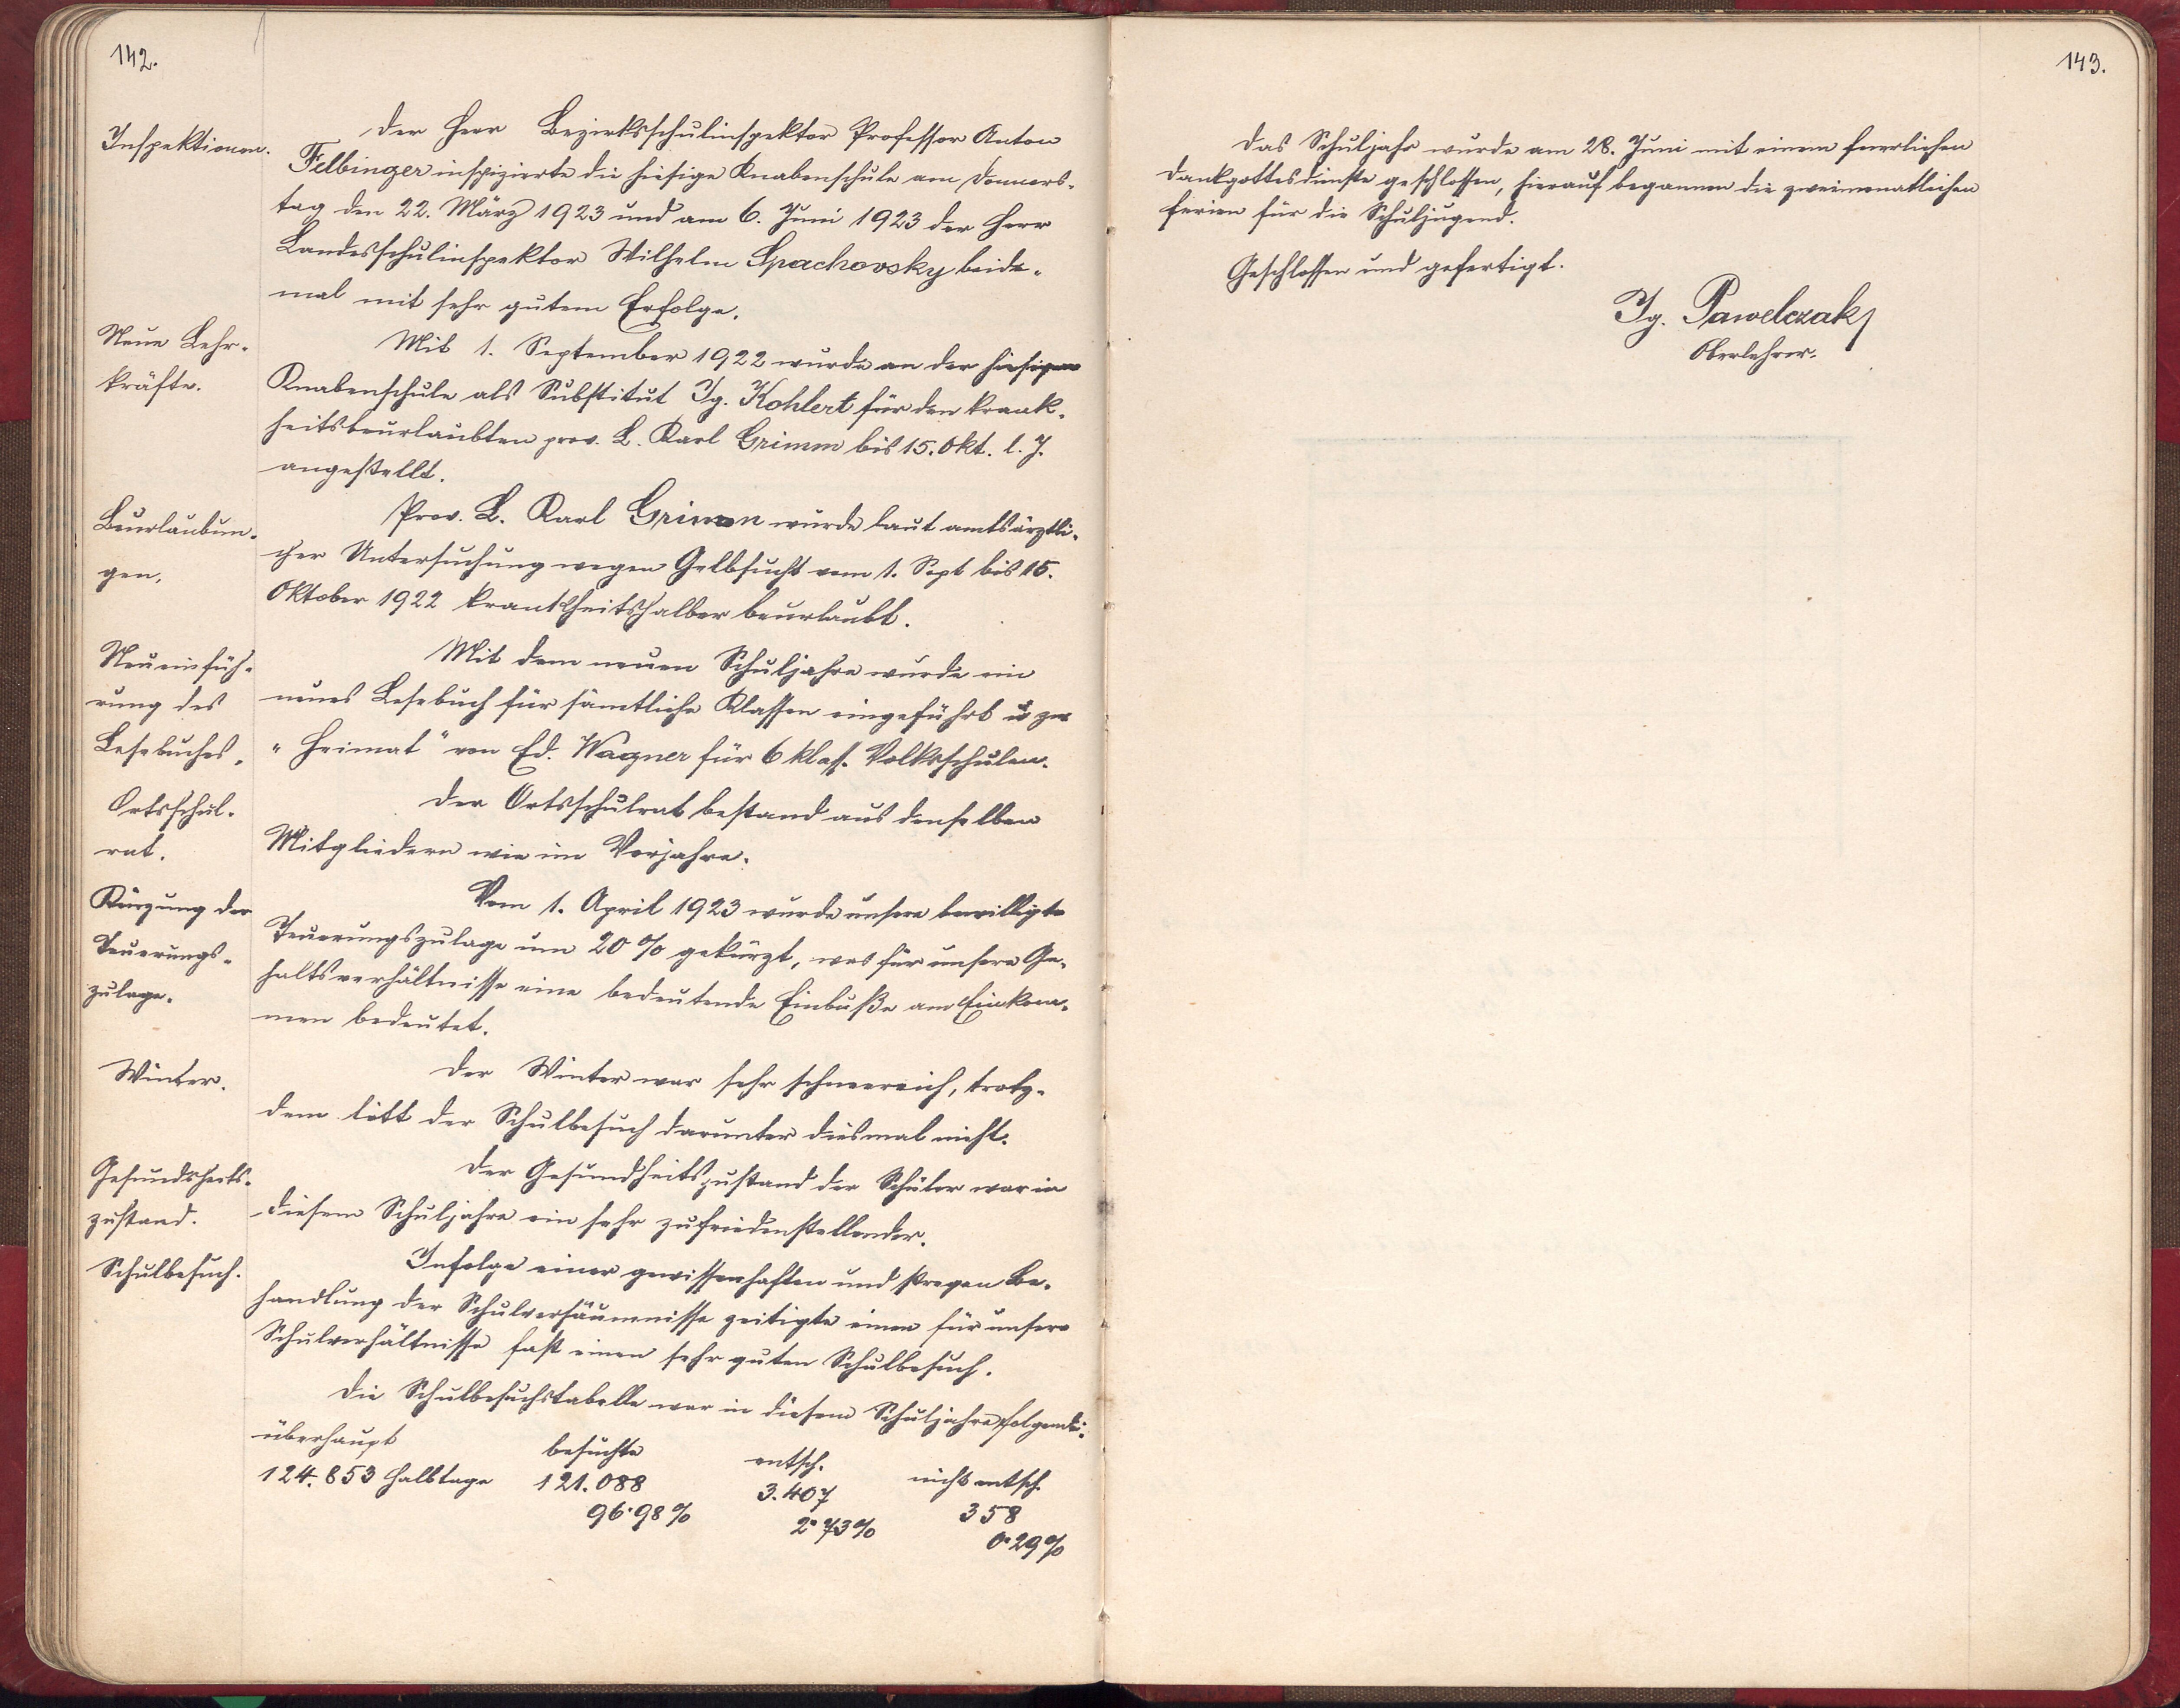 142.
Inspektionen.
Der Herr Bezirksschulinspektor Professor Anton
Felbinger inspizierte die hiesige Knabenschule am Donners-
tag den 22. März 1923 und am 6. Juni 1923 der Herr
Landesschulinspektor Wilhelm Spachovsky beide-
mal mit sehr gutem Erfolge.
Neue Lehr-
kräfte.
Mit 1. September 1922 wurde an der hiesigen
Knabenschule als Substitut Ig. Kohlert für den krank-
heitsbeurlaubten prov. L. Karl Grimm bis 15. Okt. l. J.
angestellt.
Beurlaubun-
gen.
Prov. L. Karl Grimm wurde laut amtsärztli-
cher Untersuchung wegen Gelbsucht vom 1. Sept bis 15.
Oktober 1922 krankheitshalber beurlaubt.
Neueinfüh-
rung des
Lesebuches.
Mit dem neuen Schuljahre wurde ein
neues Lesebuch für sämtliche Klassen eingeführt u zw
"Heimat" von Ed. Wagner für 6 klass. Volksschulen.
Ortsschul-
rat.
Der Ortsschulrat bestand aus denselben
Mitgliedern wie im Vorjahre.
Kürzung der
Teuerungs-
zulage.
Vom 1. April 1923 wurde unsere bewilligte
Teuerungszulage um 20 % gekürzt, was für unsere Ge-
haltsverhältnisse eine bedeutende Einbuße am Einkom-
men bedeutet.
Winter.
Der Winter war sehr schneereich, trotz-
dem litt der Schulbesuch darunter diesmal nicht.
Gesundheits-
zustand.
Der Gesundheitszustand der Schüler war in
diesem Schuljahre ein sehr zufriedenstellender.
Schulbesuch.
Infolge einer gewissenhaften und stregen Be-
handlung der Schulversäumnisse zeitigte einen für unsere
Schulverhältnisse fast einen sehr guten Schulbesuch.
Die Schulbesuchstabelle war in diesem Schuljahre folgende:
überhaupt besuchte entsch. nicht entsch.
124.853 Halbtage 121.088 3.407 358
96·98 % 2·73 % 0·29 %
143.
Das Schuljahr wurde am 28. Juni mit einem feierlichen
Dankgottesdienste geschlossen, hierauf begannen die zweimonatlichen
Ferien für die Schuljugend.
Geschlossen und gefertigt.
Ig. Pawelczak
Oberlehrer.